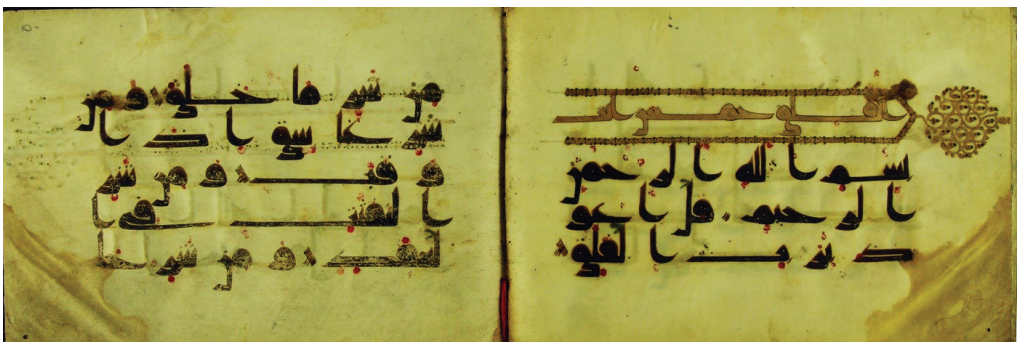 الفلق خمس
بسم الله الرحمن
الرحيم قل اعو
ذ برب الفلق
من شر ما خلق ومن
شر غاسق اذا
وقب ومن شر
النفثت في ا
لعقد ومن شر حا